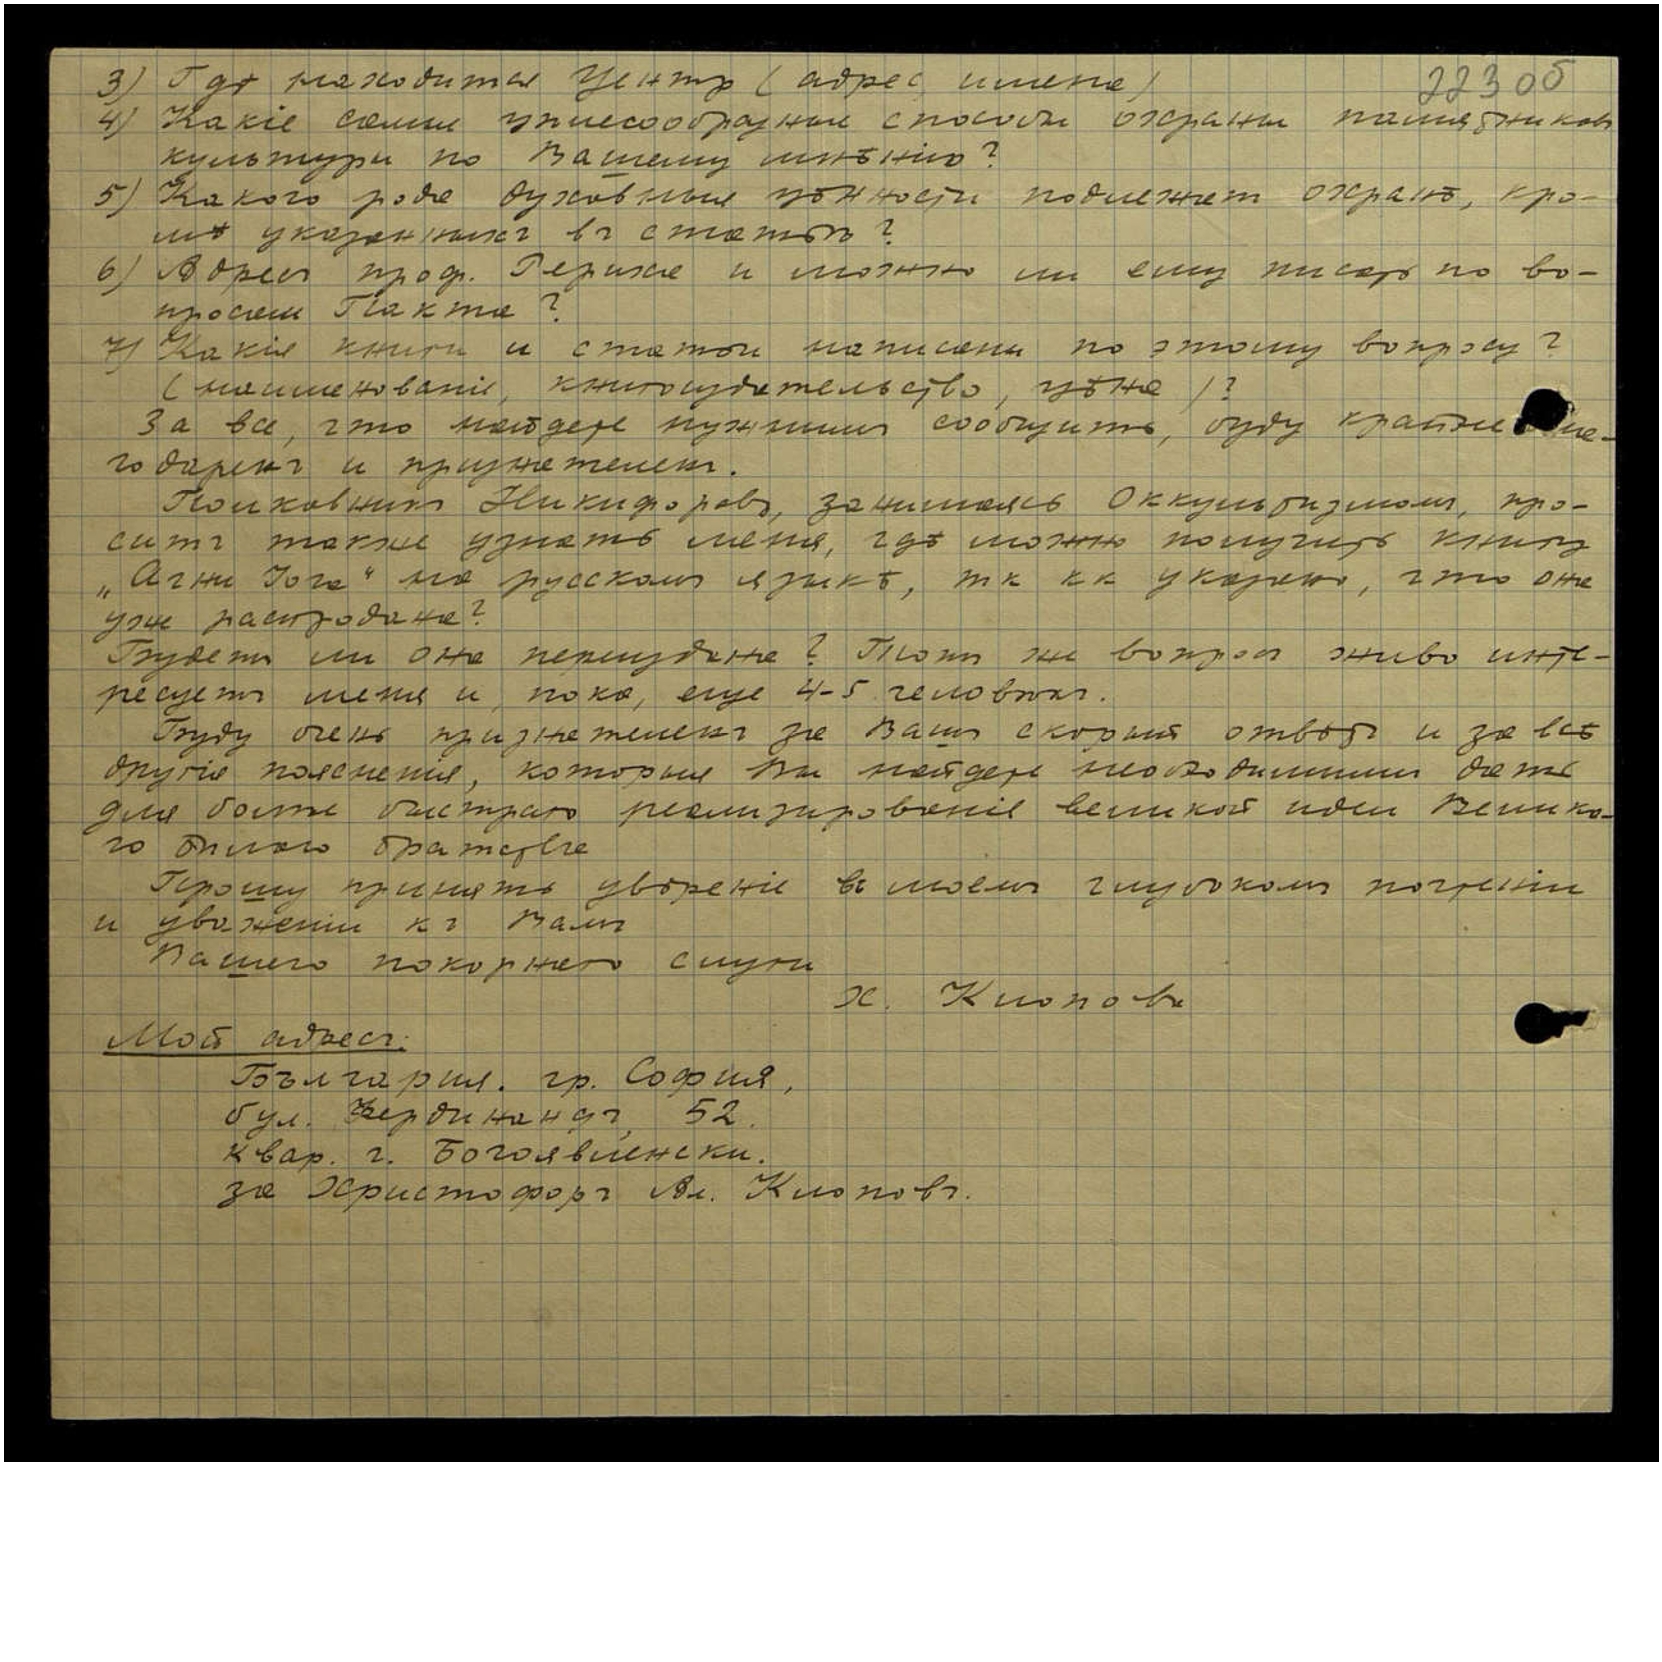 223об
3) Гдѣ находится Центр (адрес, имена)
4) Какіе самые цѣлесообразные способы охраны памятников
культуры по Вашему мнѣнію?
5) Какого рода духовные цѣнности подлежат охранѣ, кро-
мѣ указанныхъ въ статьѣ?
6) Адресъ проф. Рериха и можно ли ему писать по во-
просам Пакта?
7) Какія книги и статьи написаны по этому вопросу?
(наименованіе, книгоиздательство, цѣна)?
За все, что найдете нужнымъ сообщить, буду крайне бла-
годаренъ и признателенъ.
Полковникъ Никифоровъ, занимаясь Оккультизмомъ, про-
ситъ также узнать меня, гдѣ можно получить книгу
„Агни Йога“ на русскомъ языкѣ, тк кк указано, что она
уже распродана?
Будетъ ли она переиздана? Тотъ же вопросъ живо инте-
ресуетъ меня и, пока, еще 4-5 человѣкъ.
Буду очень признателенъ за Вашъ скорый отвѣтъ и за всѣ
другія пояснения, которыя Вы найдете необходимыми дать
для болѣе быстраго реализированіе великой идеи Велико-
го Бѣлаго братства
Прошу принять увѣреніе въ моемъ глубокомъ почтеніи
и уваженіи къ Вамъ
Вашего покорнаго слуги
Х. Клоповъ
Мой адресъ:
България. гр. София,
бул. Фердинандъ, 52.
квар. г. Богоявленски.
за Христофоръ Ал. Клоповъ.